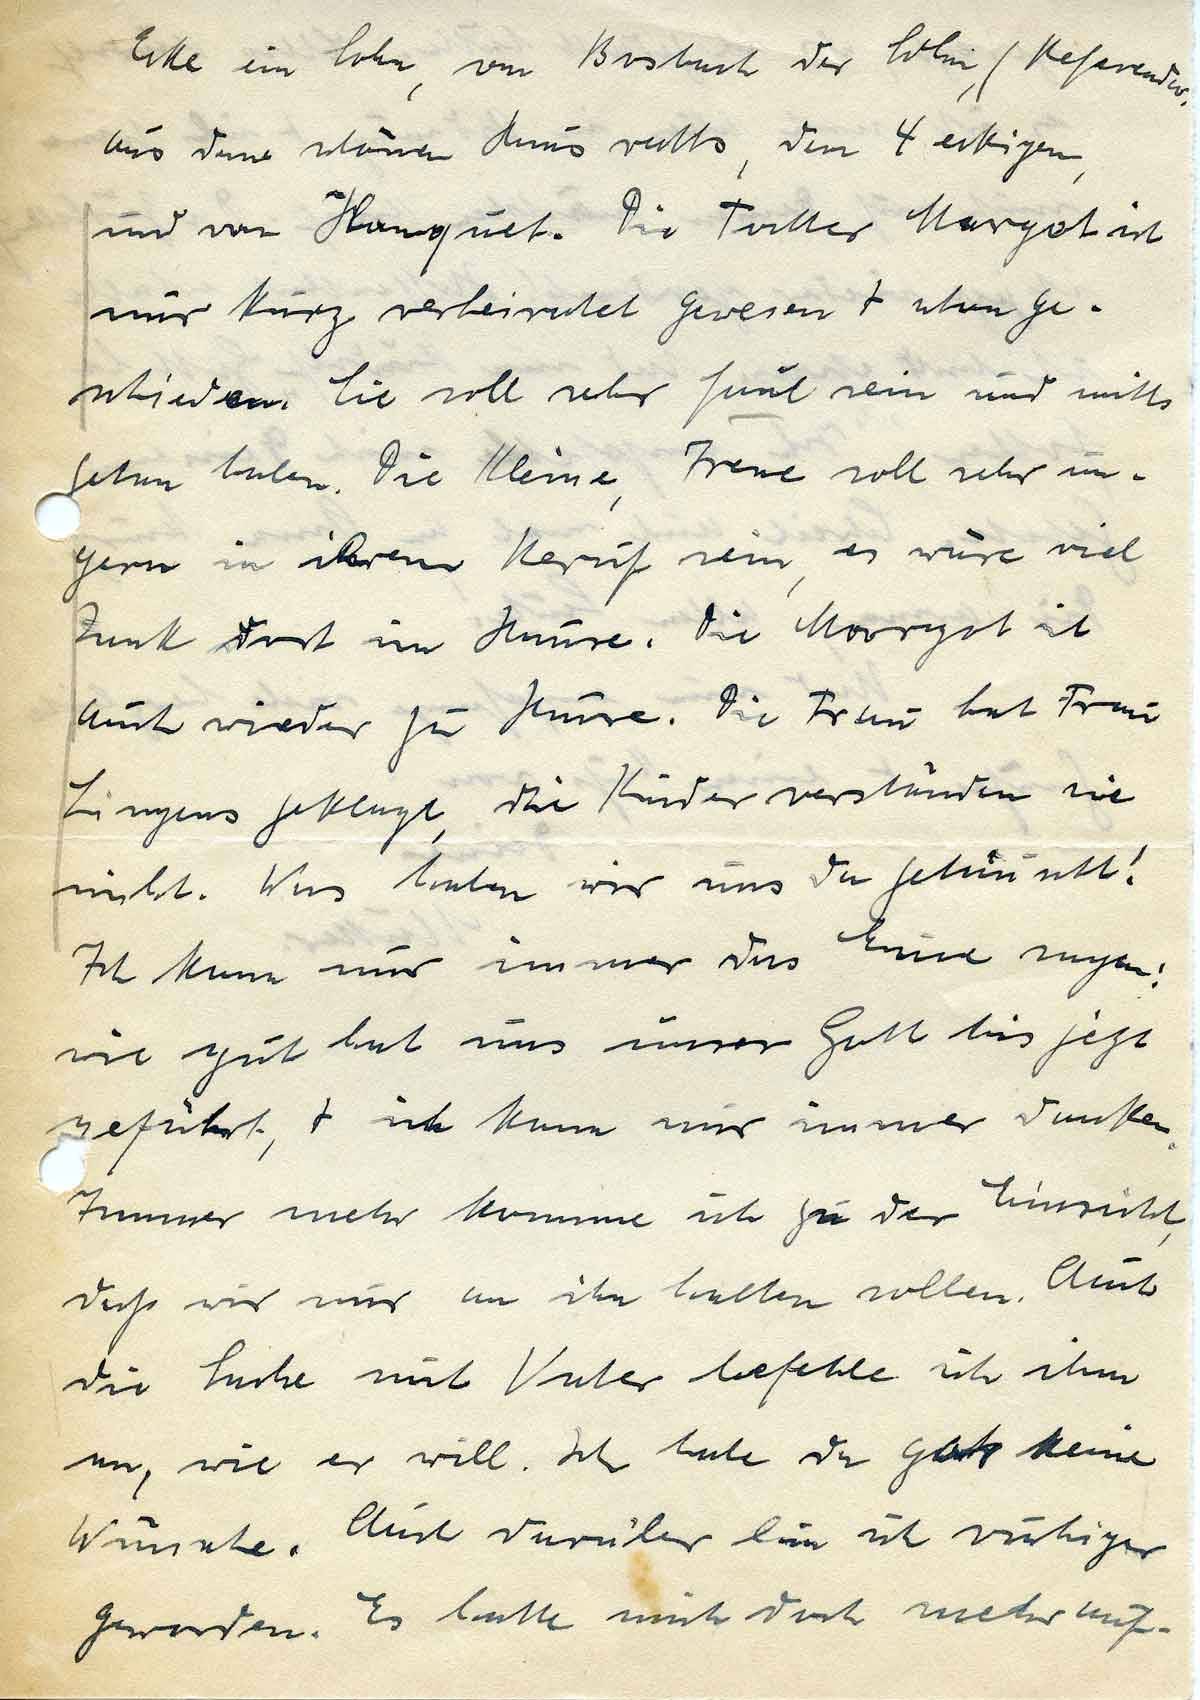 Ecke ein Sohn, von Bosbach der Sohn, (Referendar,
aus dem schönen Haus rechts, dem 4 eckigen,
und von Hanquet. Die Tochter Margot ist
nur kurz verheiratet gewesen + schon ge-
schieden. Sie soll sehr faul sein und nichts
getan haben. Die Kleine, Irene soll sehr un-
gern in ihrem Beruf sein, es wäre viel
Zank dort im Hause. Die Margot ist
auch wieder zu Hause. Die Frau hat Frau
Lingens geklagt, die Kinder verständen sie
nicht. Was haben wir uns da getäuscht!
Ich kann nur immer das Eine sagen:
wie gut hat uns unser Gott bis jezt
geführt, + ich kann nur immer danken.
Immer mehr komme ich zu der Einsicht,
daß wir nur an ihn halten sollen. Auch
die Sache mit Vater befehle ich ihm
an, wie er will. Ich habe da gar keine
Wünsche. Auch darüber bin ich ruhiger
geworden. Es hatte mich doch mehr auf-